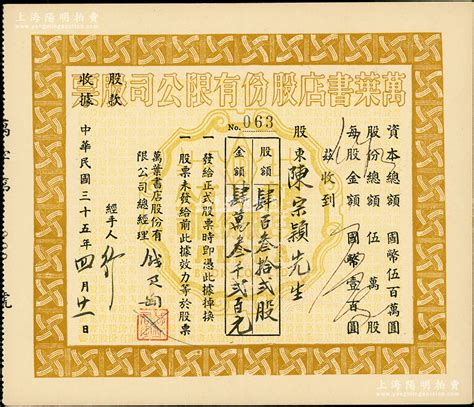 上海陽明拍賣
萬葉書店股份有限公司股票
No. 063
資本總額 國幣伍百萬圓
股份總額 伍萬股
每股金額 國幣壹百圓
茲收到
股東陳宗穎先生
股額 肆百叁拾貳股
金額 肆萬叁千貳百元
一 發給正式股票時即憑此據掉換
一 股票未發給前此據效力等於股票
萬葉書店股份有
限公司總經理
經手人
中華民國三十五年四月廿一日
股款
收據
上海陽明拍賣